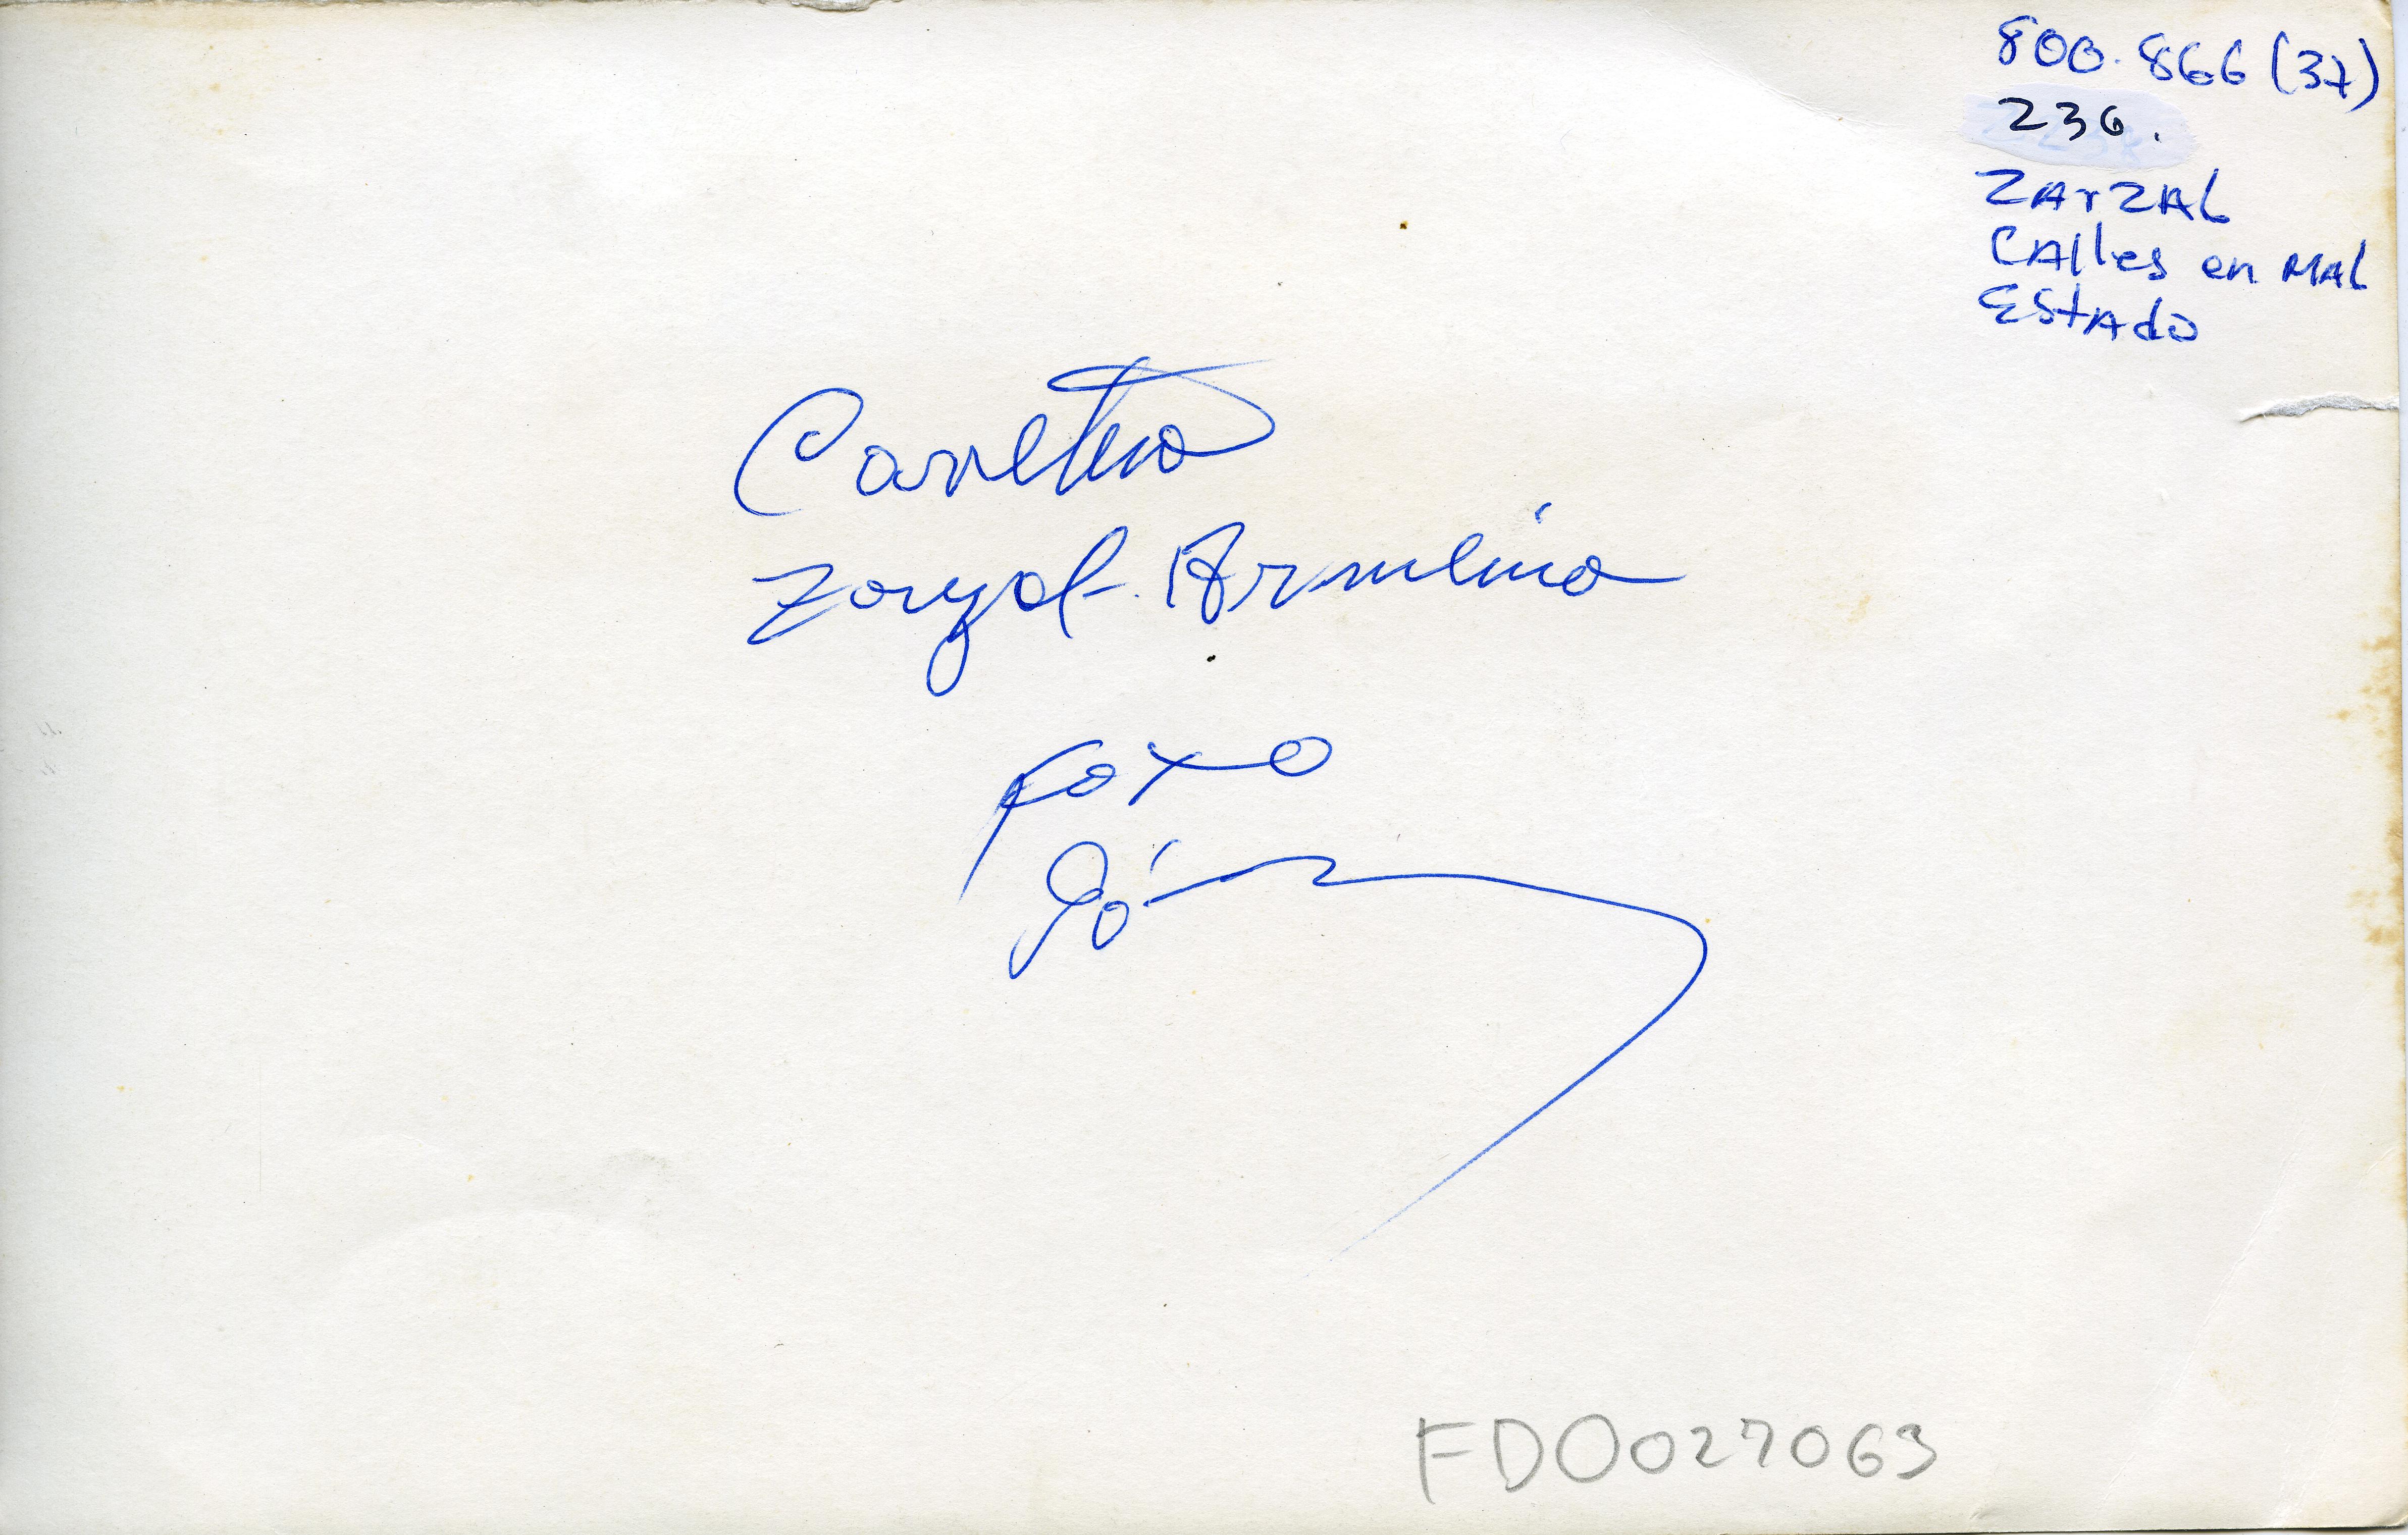 800.866 (37)
236.
ZArZAL
CAlles en MAL
EStAdo
Carretera
Zarzal-Armenia
FDO027063